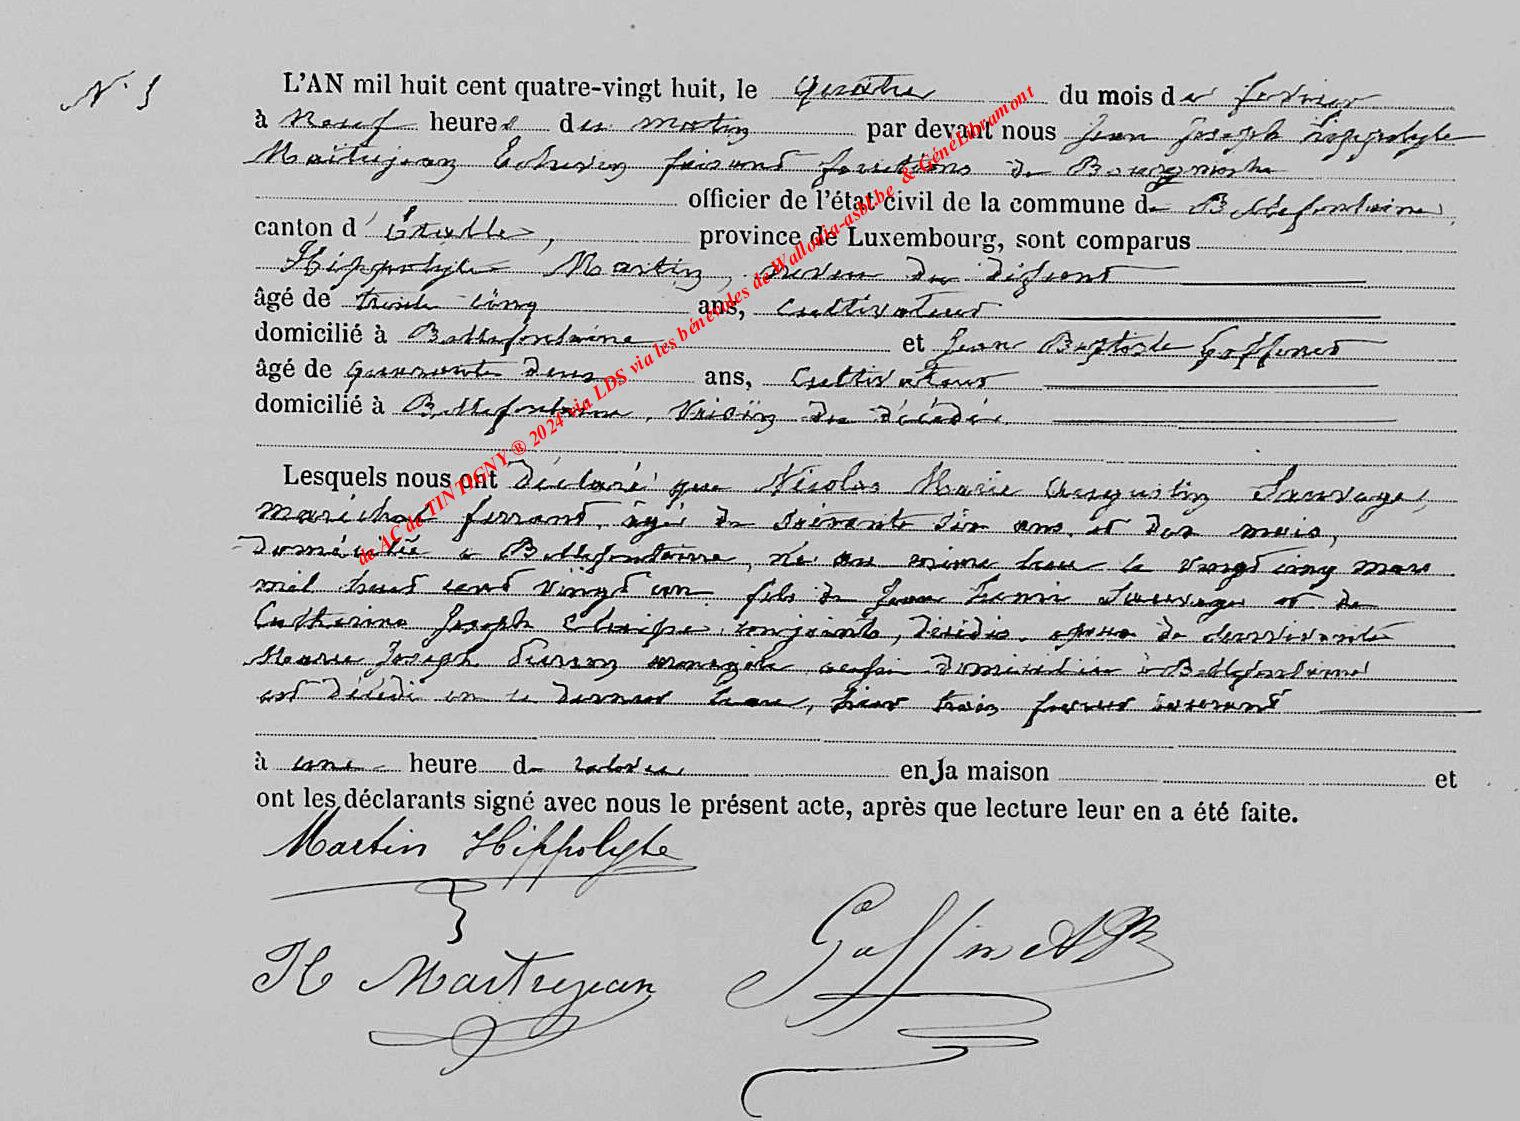 N° 5
L'AN mil huit cent quatre-vingt huit, le quatre du mois de février
à neuf heures du matin par devant nous Jean Joseph Hippolyte
Maitrejean Echevin faisant fonctions de Bourgmestre
officier de l'état civil de la commune de Bellefontaine,
canton d'Etalle, province de Luxembourg, sont comparus
Hippolyte Martin, neveu du défunt
âgé de trente cinq ans, cultivateur
domicilié à Bellefontaine et Jean Baptiste Goffinet
âgé de quarante deux ans, cultivateur
domicilié à Bellefontaine, voisin du décédé.
Lesquels nous ont déclaré que Nicolas Marie Augustin Sauvage,
maréchal ferrant, âgé de soixante six ans et dix mois,
domicilié à Bellefontaine, né au même lieu le vingt cinq mars
mil huit cent vingt un fils de Jean Henri Sauvage et de
Catherine Joseph conjoints, décédés, époux de survivante
Marie Joseph Pierson ménagère aussi domiciliée à Bellefontaine
est décédé en ce dernier lieu, hier trois février courant
à une heure de relevée en la maison et
ont les déclarants signé avec nous le présent acte, après que lecture leur en a été faite.
Martin Hippolyte
H Maitrejean
Goffinet JB
de AC de TINTIGNY ® 2024 via LDS via les bénévoles de Wallonia-asbl.be & GénéLibramont